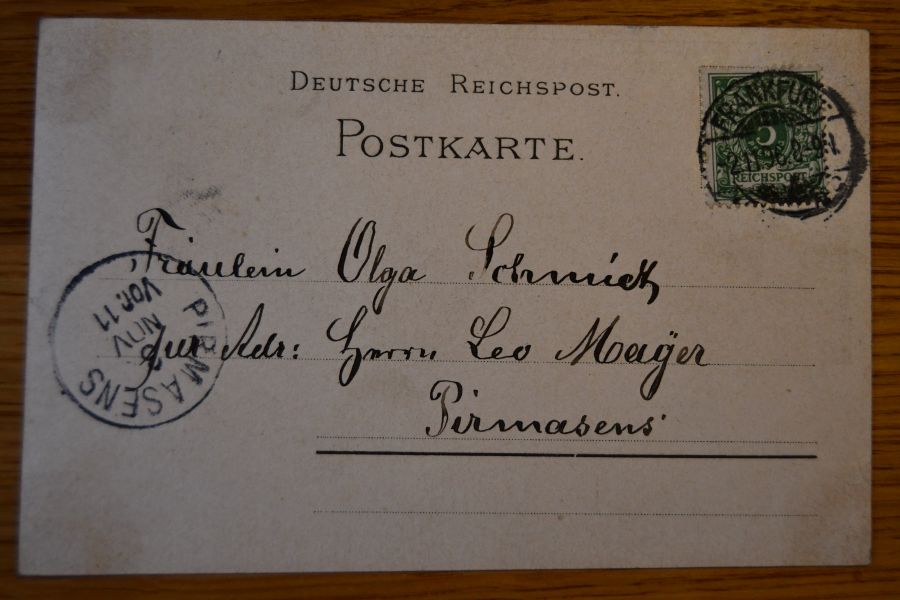 DEUTSCHE REICHSPOST.
POSTKARTE.
FRANKFURT
5
REICHSPOST
Fräulein Olga Schmidt
pur Adr: Herrn Leo Mayer
Pirmasens
PIRMASENS
NOV
Vor. 11